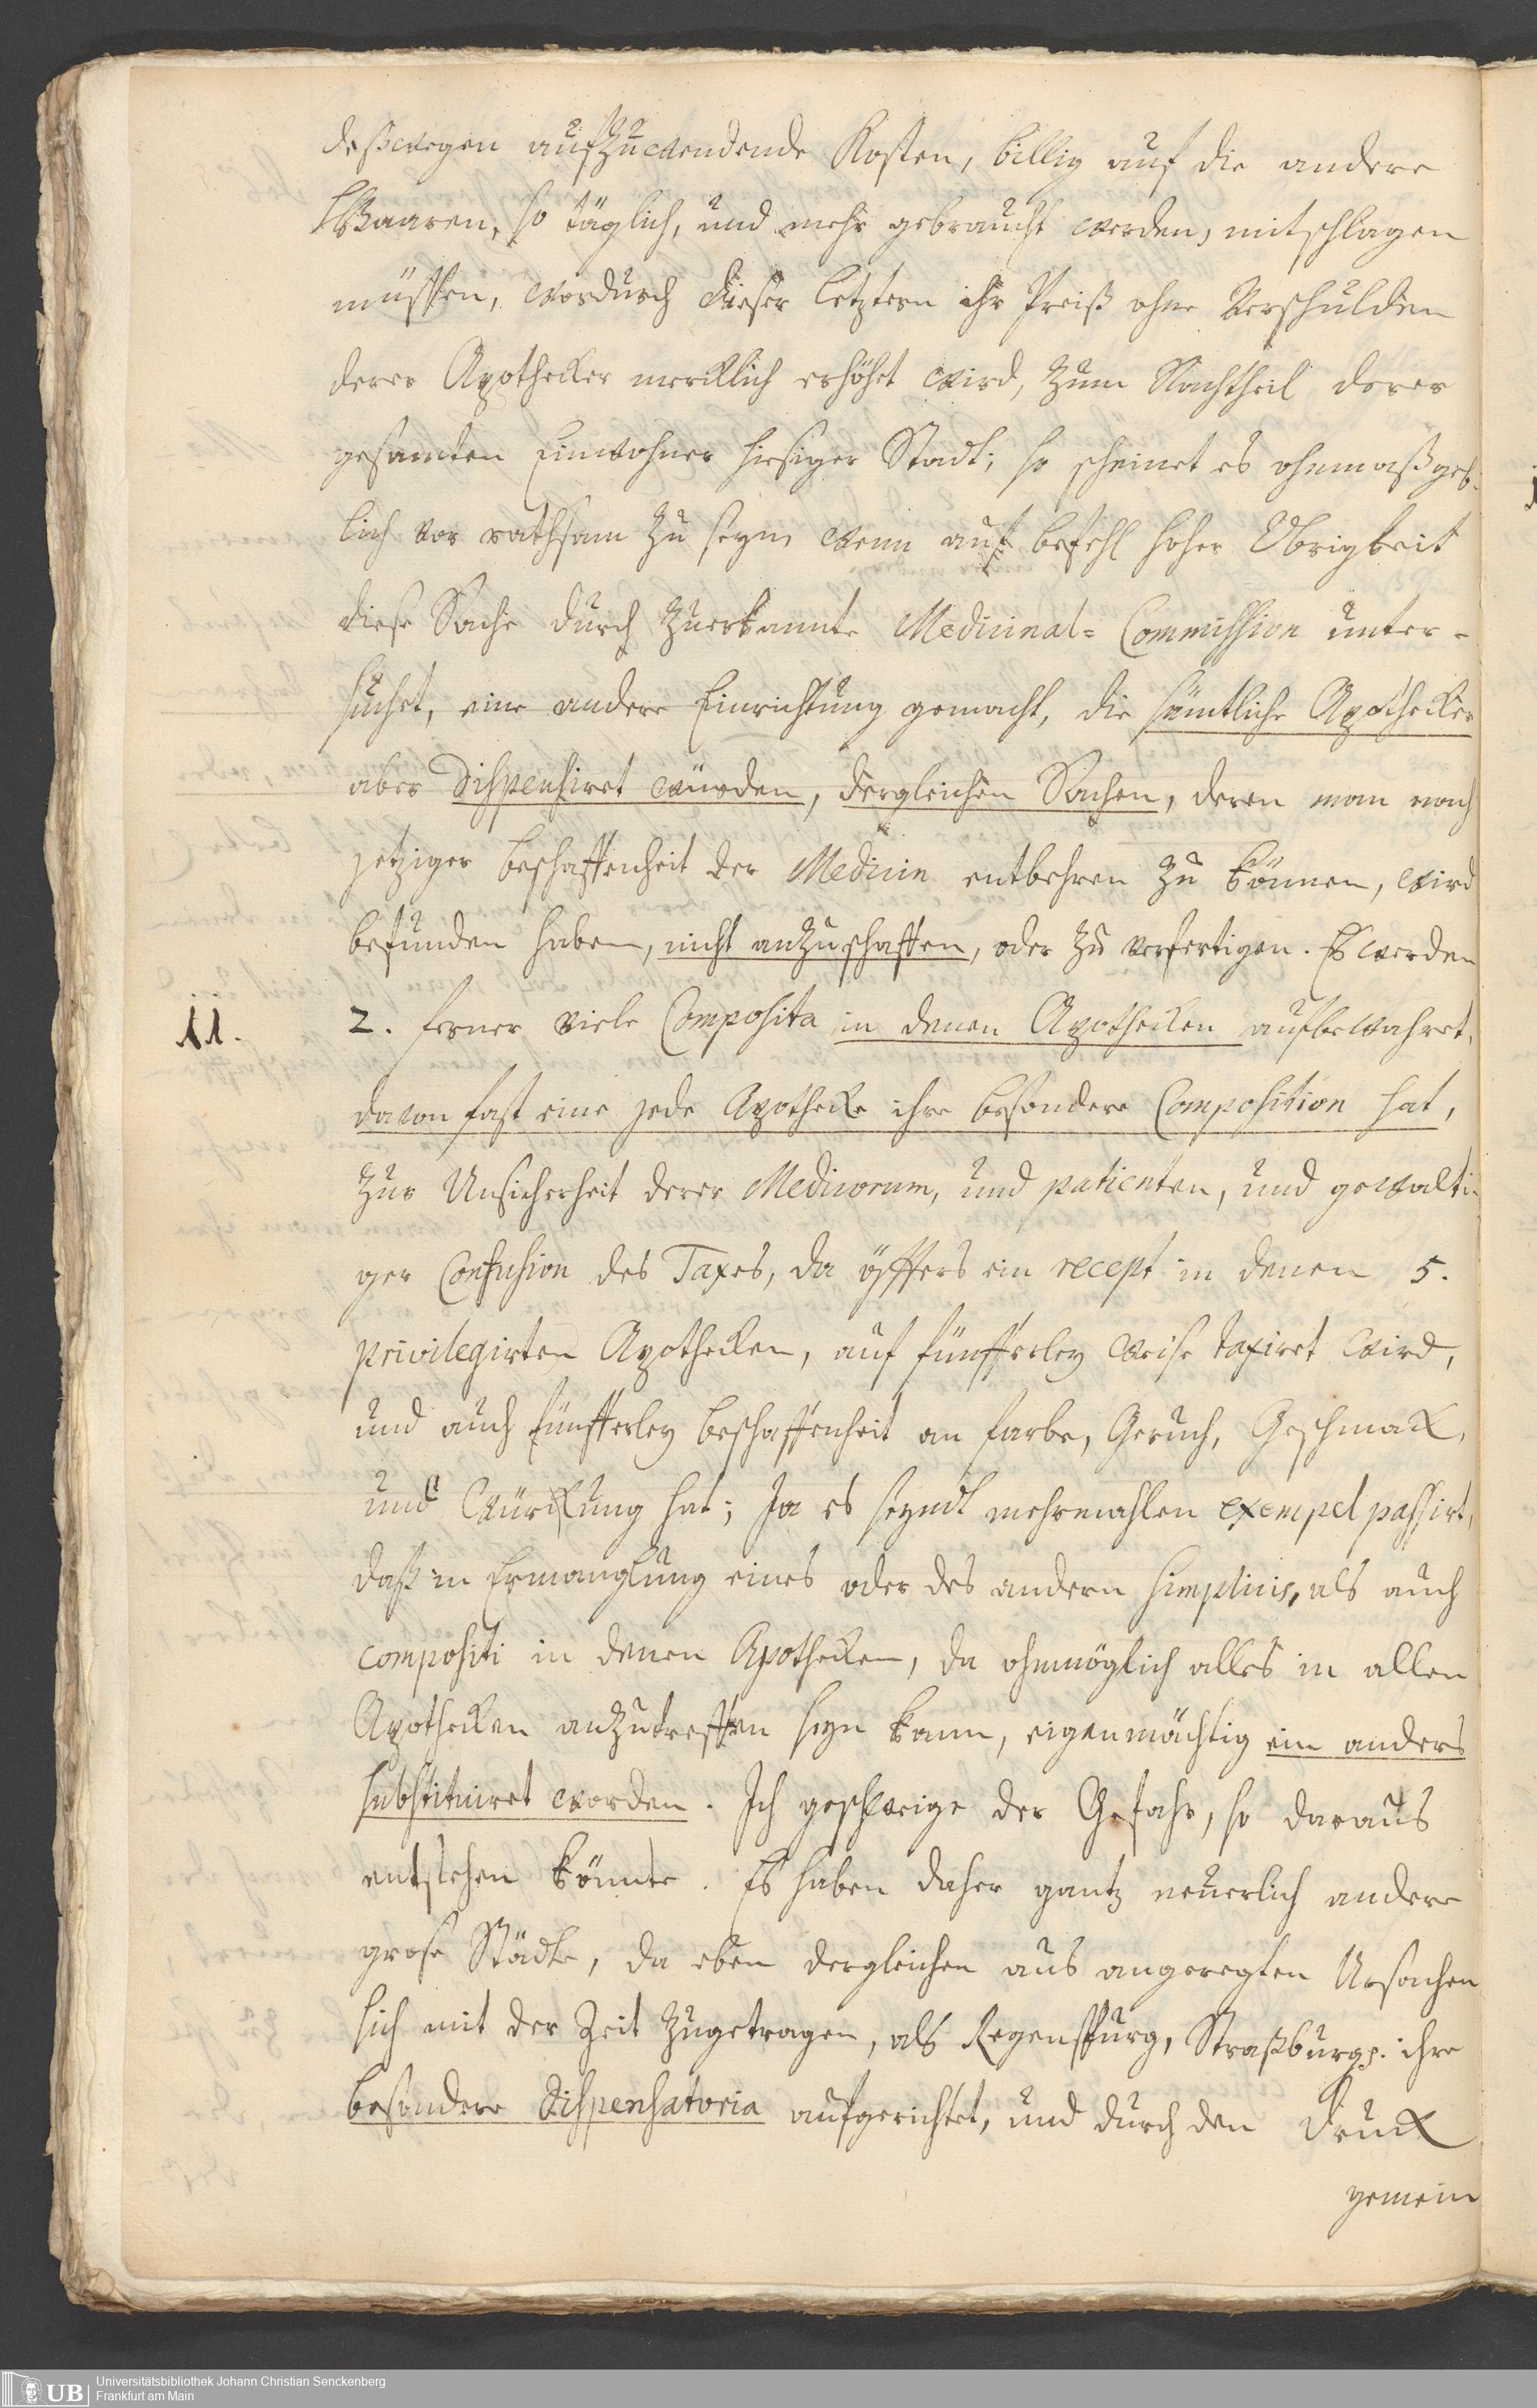 deßwegen aufzuwendende Kosten, billig auf die andere
Waaren, so täglich, und mehr gebraucht werden, mitschlagen
müssen, wordurch dieser letztern ihr Preiß ohne Verschulden
derer Apothecker mercklich erhöhet wird, zum Nachtheil derer
gesamten Einwohner hiesiger Stadt; so scheinet es ohnmaßgeb-
lich vor rathsam zu seyn, wenn auf befehl hoher Obrigkeit
diese Sache durch zuerkannte Medicinal- Commission unter-
suchet, eine andere Einrichtung gemacht, die sämtliche Apothecker
aber dispensiret würden, dergleichen Sachen, deren man nach
jetziger beschaffenheit der Medicin entbehren zu können, wird
befunden haben, nicht anzuschaffen, oder zu verfertigen. Es werden
11.
2. ferner viele Composita in denen Apothecken aufbewahret,
davon fast eine jede Apothecke ihre besondere Composition hat,
zur Unsicherheit derer Medicorum, und patienten, und gewalti-
ger Confusion des Taxes, da öffters ein recept in denen 5.
privilegirten Apothecken, auf fünfferley weise taxiret wird,
und auch fünfferley beschaffenheit an farbe, Geruch, Geschmack,
und Würckung hat; Ja es seyndt mehrmahlen exempel passirt,
daß in Ermanglung eines oder des andern simplicis, als auch
compositi in denen Apothecken, da ohnmöglich alles in allen
Apothecken anzutreffen seyn kann, eigenmächtig ein anders
substituiret worden. Ich geschweige der Gefahr, so daraus
entstehen könnte. Es haben daher gantz neuerlich andere
grose Städte, da eben dergleichen aus angeregten Ursachen
sich mit der Zeit zugetragen, als Regenspurg, Straßburg p. ihre
besondere Dispensatoria aufgerichtet, und durch den Druck
gemein
UB Universitätsbibliothek Johann Christian Senckenberg
Frankfurt am Main